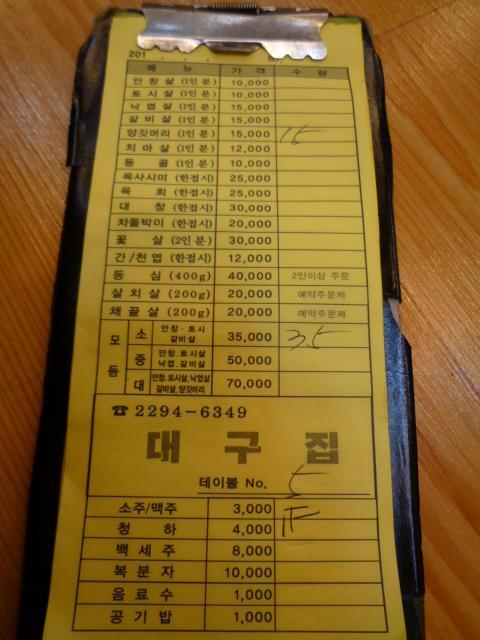 201 . . .
메 뉴 가 격 수 량
안창살 (1인분) 10,000
토시살 (1인분) 10,000
낙엽살 (1인분) 15,000
갈비살 (1인분) 15,000
양깃머리 (1인분) 15,000 15
치마살 (1인분) 12,000
등 골 (1인분) 10,000
육사시미 (한접시) 25,000
육 회 (한접시) 25,000
대 창 (한접시) 30,000
차돌박이 (한접시) 20,000
꽃 살 (2인분) 30,000
간/천엽 (한접시) 12,000
등 심 (400g) 40,000 2인이상 주문
살치살 (200g) 20,000 예약주문제
채끝살 (200g) 20,000 예약주문제
모듬 소 안창·토시 갈비살 35,000 35
중 안창,토시살 낙엽,갈비살 50,000
대 안창,토시살,낙엽살 갈비살,양깃머리 70,000
☎ 2294-6349
대 구 집
테이블 No. 5
소주/맥주 3,000
청 하 4,000
백 세 주 8,000
복 분 자 10,000
음 료 수 1,000
공 기 밥 1,000